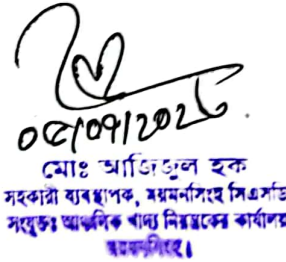 ০৫/০৭/২০২৬
মোঃ আজিজুল হক
সহকারী ব্যবস্থাপক, ময়মনসিংহ সিএসডি
সংযুক্তঃ আঞ্চলিক খাদ্য নিয়ন্ত্রকের কার্যালয়
ময়মনসিংহ।